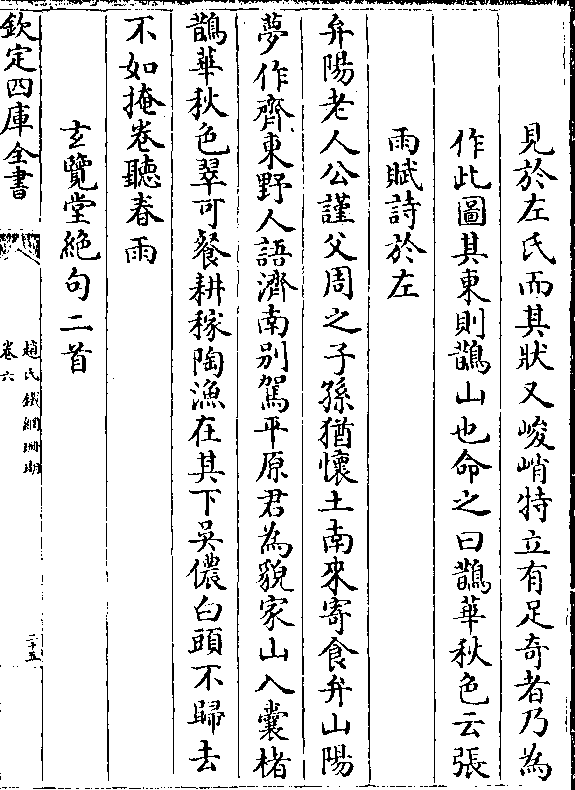 見於左氏而其狀又峻峭特立有足奇者乃為
作此圖其東則鵲山也命之曰鵲華秋色云張
雨賦詩於左
弁陽老人公謹父周之子孫猶懷土南來寄食弁山陽
夢作齊東野人語濟南别駕平原君為貌家山入囊楮
鵲華秋色翠可餐耕稼陶漁在其下吳儂白頭不歸去
不如掩卷聽春雨
玄覽堂絶句二首
欽定四庫全書
趙氏鐵網珊瑚
卷六
二十五